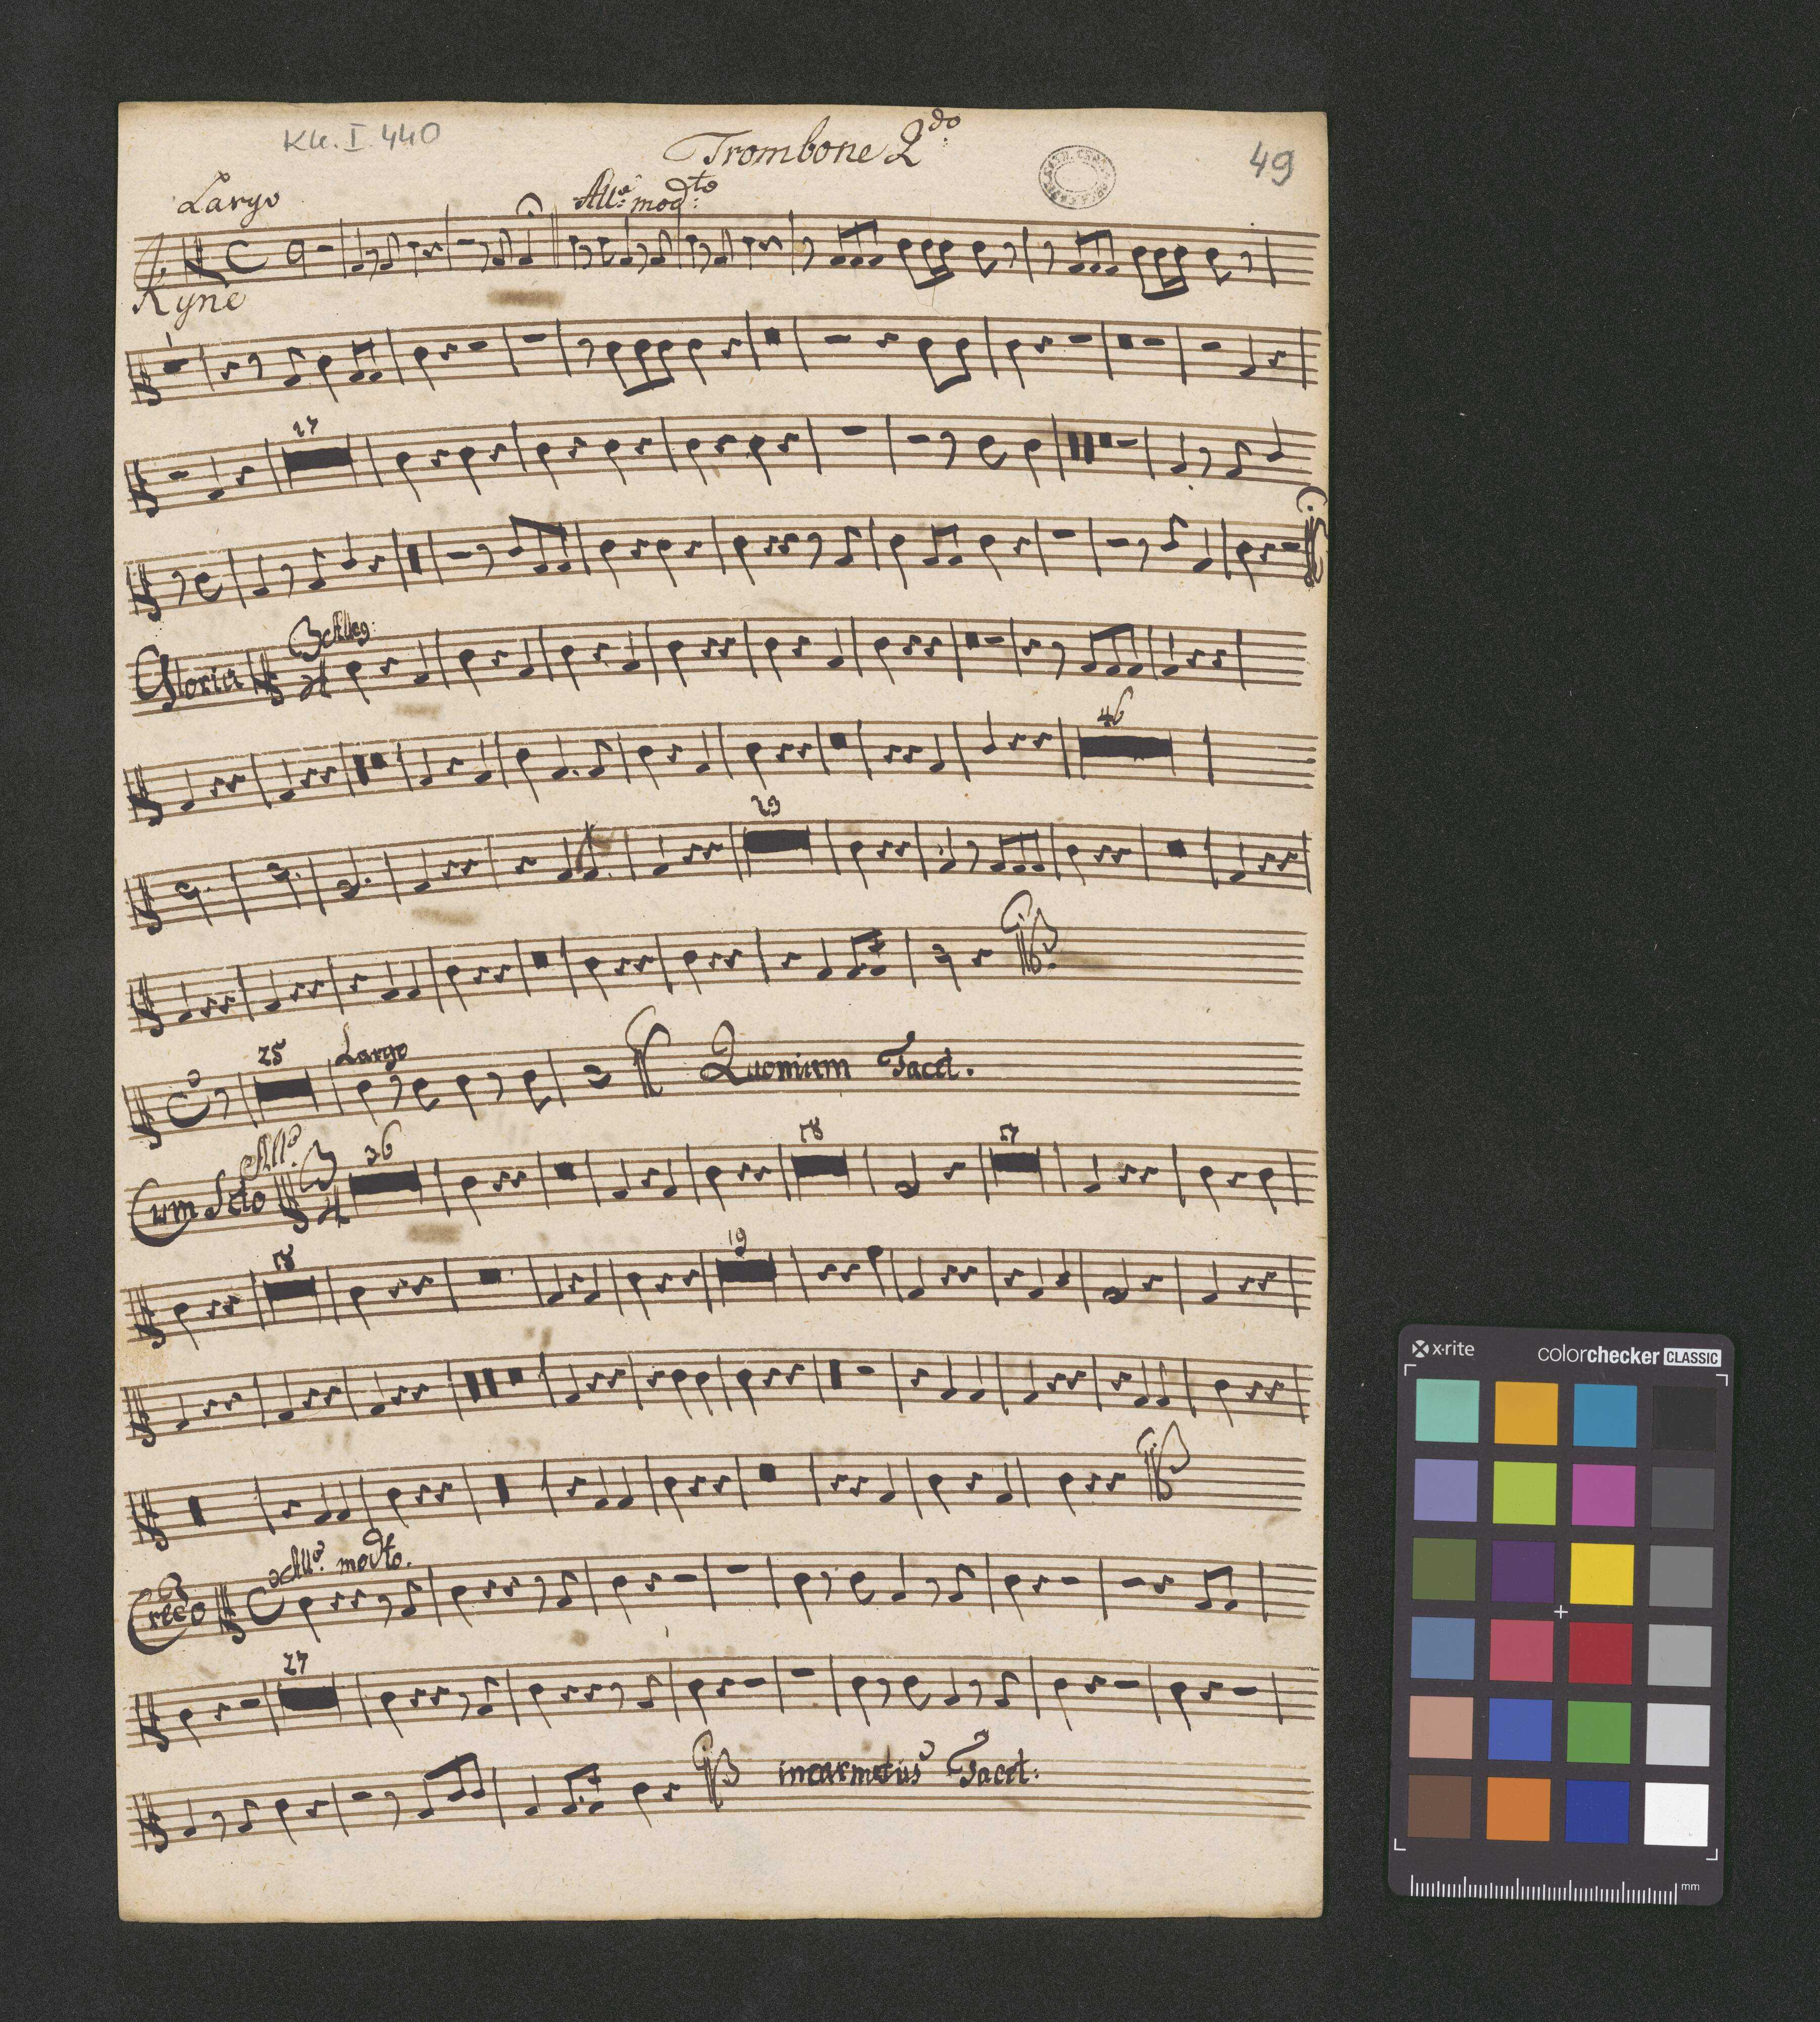 Kk. I. 440
Trombone 2do.
49
Largo
Allo: modto:
Kyrie
27
Gloria
3/4 Alleg:
46
29
25
Largo
Quoniam Tacet.
Cum Scto
Allo.
3/4
36
18
17
18
19
Credo
Allo. modto.
27
incarnatus Tacet:
x·rite
colorchecker CLASSIC
mm